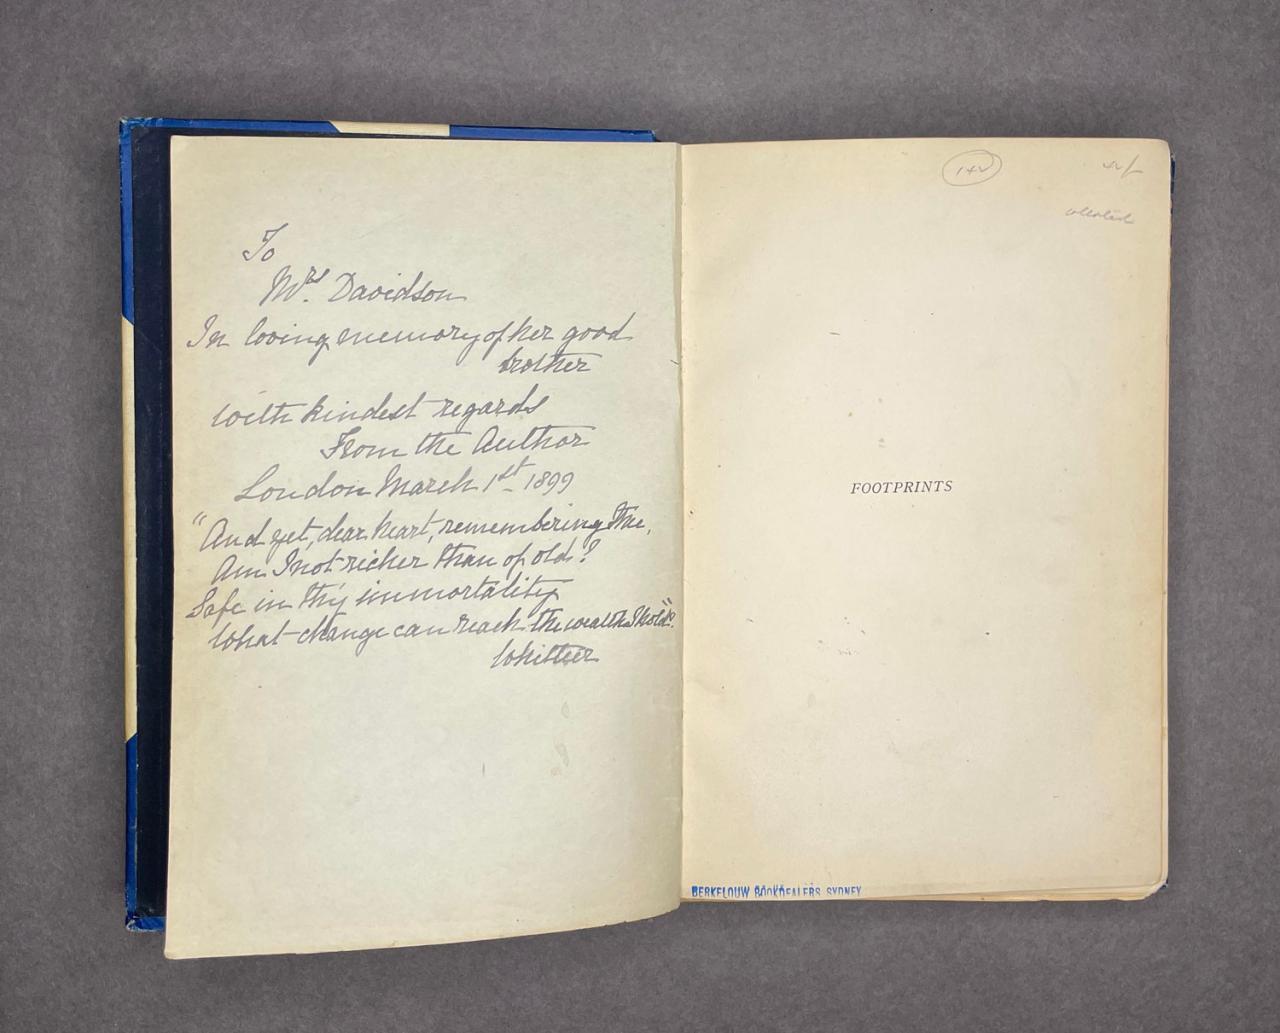 To
Mrs. Davidson
In loving memory of her good
brother
with kindest regards
From the Author
London March 1st 1899
"And yet, dear heart, remembering thee,
Am I not richer than of old?
Safe in thy immortality
What change can reach the wealth I hold"?
Whittier
142
42/-
collated
FOOTPRINTS
BERKELOUW BOOKDEALERS SYDNEY